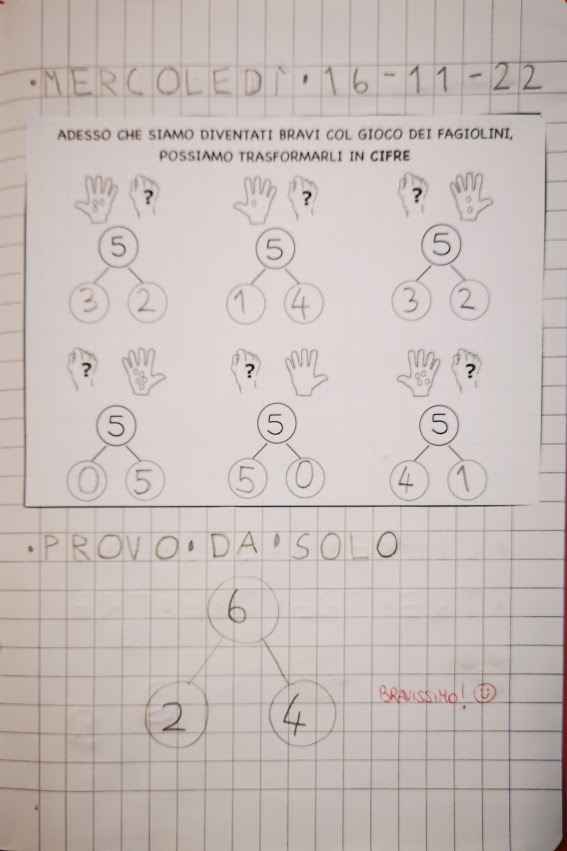 • MERCOLEDÌ • 16-11-22
ADESSO CHE SIAMO DIVENTATI BRAVI COL GIOCO DEI FAGIOLINI,
POSSIAMO TRASFORMARLI IN CIFRE
? ? ?
5 5 5
3 2 1 4 3 2
? ? ?
5 5 5
0 5 5 0 4 1
• PROVO • DA • SOLO
6
BRAVISSIMO!
2 4